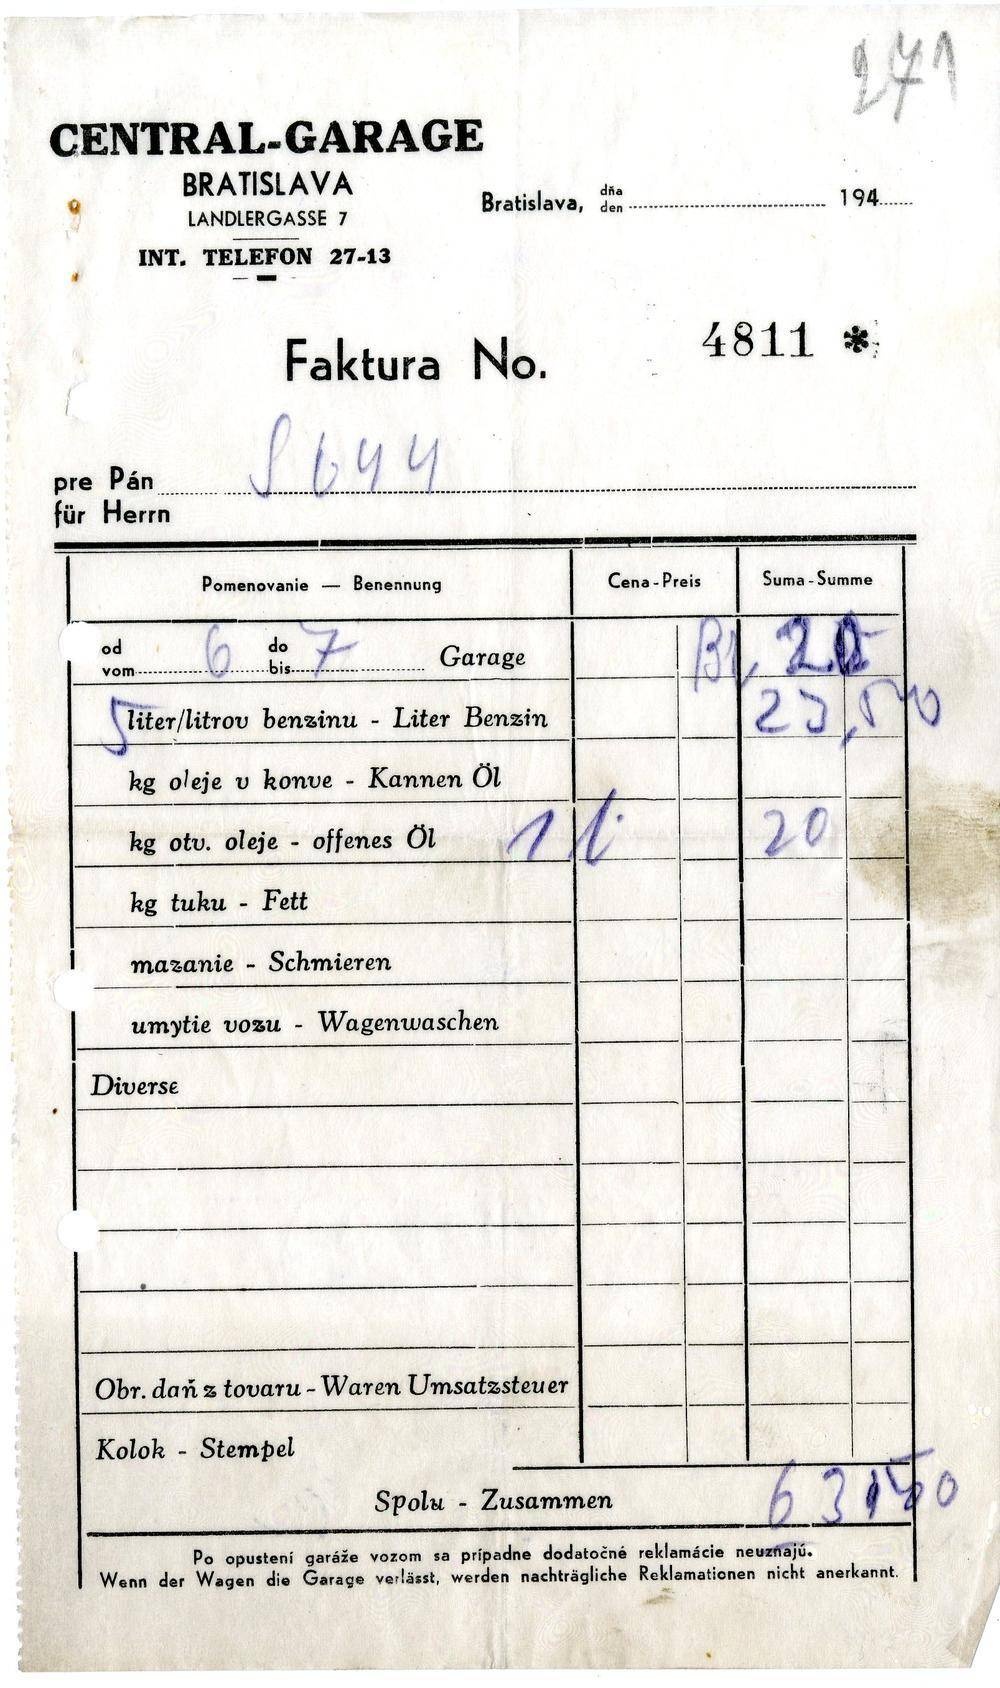 271
CENTRAL-GARAGE
BRATISLAVA
LANDLERGASSE 7
INT. TELEFON 27-13
Bratislava, dňa den 194
Faktura No. 4811 *
pre Pán S 644
für Herrn
Pomenovanie — Benennung Cena-Preis Suma-Summe
od vom 6 do bis 7 Garage 20
5 liter/litrov benzinu - Liter Benzin 23,50
kg oleje v konve - Kannen Öl
kg otv. oleje - offenes Öl 1 l. 20
kg tuku - Fett
mazanie - Schmieren
umytie vozu - Wagenwaschen
Diverse
Obr. daň z tovaru - Waren Umsatzsteuer
Kolok - Stempel
Spolu - Zusammen 63,50
Po opustení garáže vozom sa prípadne dodatočné reklamácie neuznajú.
Wenn der Wagen die Garage verlässt, werden nachträgliche Reklamationen nicht anerkannt.